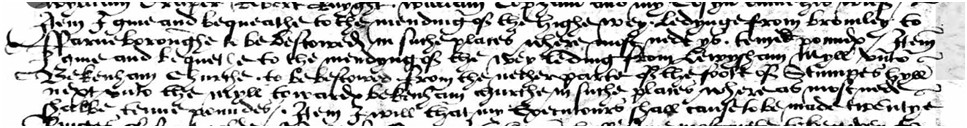 Item I gyve and bequeathe to the mending of the highe wey ledynge from bromley to
ffarneboroughe to be bestowed in suche places where most nede ys tenne poundes Item
I gyve and bequethe to the mendyng of the wey leding from Lewysham Myll unto
Bekenham Churche to be bestowed from the nether parte of the foot of Stumpes hyll
next unto the myll towardes bekenham churche in suche places where as most nede
shalbe tenne poundes Item I will that my Executours shall cause to be made twentye